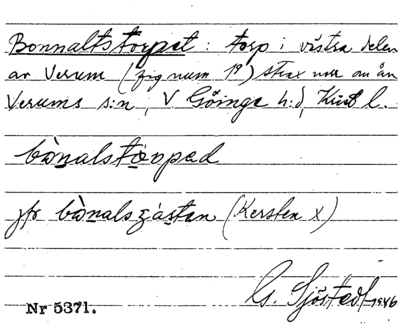 Bonnaltstorpet: torp i västra delen
av Verum (fig num 19) strax norr om ån
Verums s:n, V Göinge h:d, Krist l.
bònalstòrped
jfr bònals (Kersten X)
G. Sjöstedt 1946
Nr 5371.